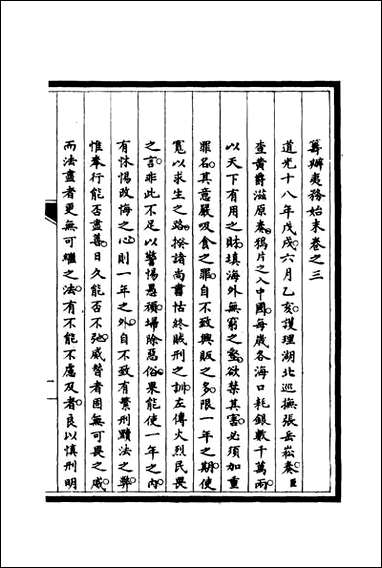 籌辦夷務始末卷之三
道光十八年戊戌六月乙亥護理湖北巡撫張岳崧奏臣
查黃爵滋原奏鴉片之入中國每歲各海口耗銀數千萬兩
以天下有用之財填海外無窮之壑欲禁其害必須加重
罪名其意嚴吸食之罪自不致興販之多限一年之期使
寬以求生之路揆諸尚書怙終賊刑之訓左傳火烈民畏
之言非此不足以警惕愚頑埽除惡俗果能使一年之內
有怵惕改悔之心則一年之外自不致有繁刑黷法之弊
惟奉行能否盡善日久能否不弛威瞀者固無可畏之威
而法盡者更無可繼之法有不能不慮及者良以慎刑明